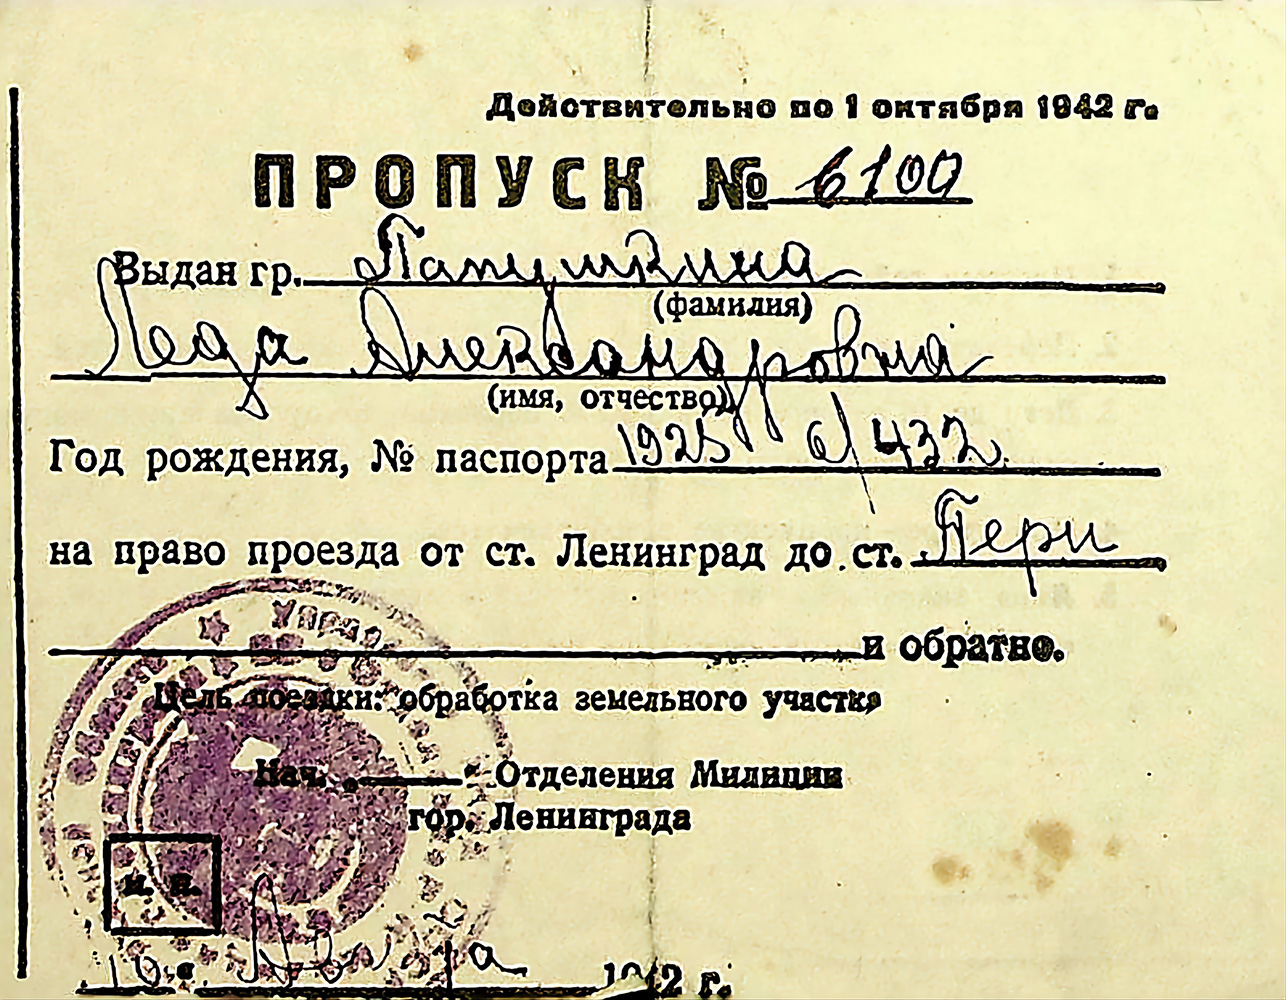 Действительно по 1 октября 1942 г.
ПРОПУСК № 6100
Выдан гр. Папушкина
(фамилия)
Леда Александровна
(имя, отчество)
Год рождения, № паспорта 1925 6/432
на право проезда от ст. Ленинград до ст. Пери
и обратно.
Цель поездки: обработка земельного участка
Нач. „ “ Отделения Милиции
гор. Ленинграда
М. П.
1942 г.